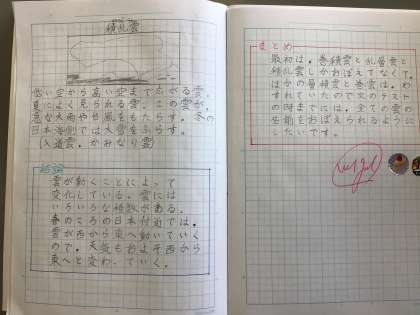 積乱雲
低い空から高い空まで広がる雲。
夏によく見られる雲。この雲が、
急な大雨や台風をもたらす。冬の
日本海側では大雪をふらす。
(入道雲、かみなり雲)
結論
雲が動くことによって
変化している。雲には
いろいろな種類がある。
春のころの日本付近では、
雲が西から東へ動いていく
ので、天気もおよそ西から
東へと変わっていく。
まとめ
最初は、巻積雲と乱層雲と
積乱雲しかおぼえてなくて、
ほかの層積雲と巻雲は、わ
すれていたので次のテスト
の時までには、全ての雲の
名前をおぼえられるように
したいです。